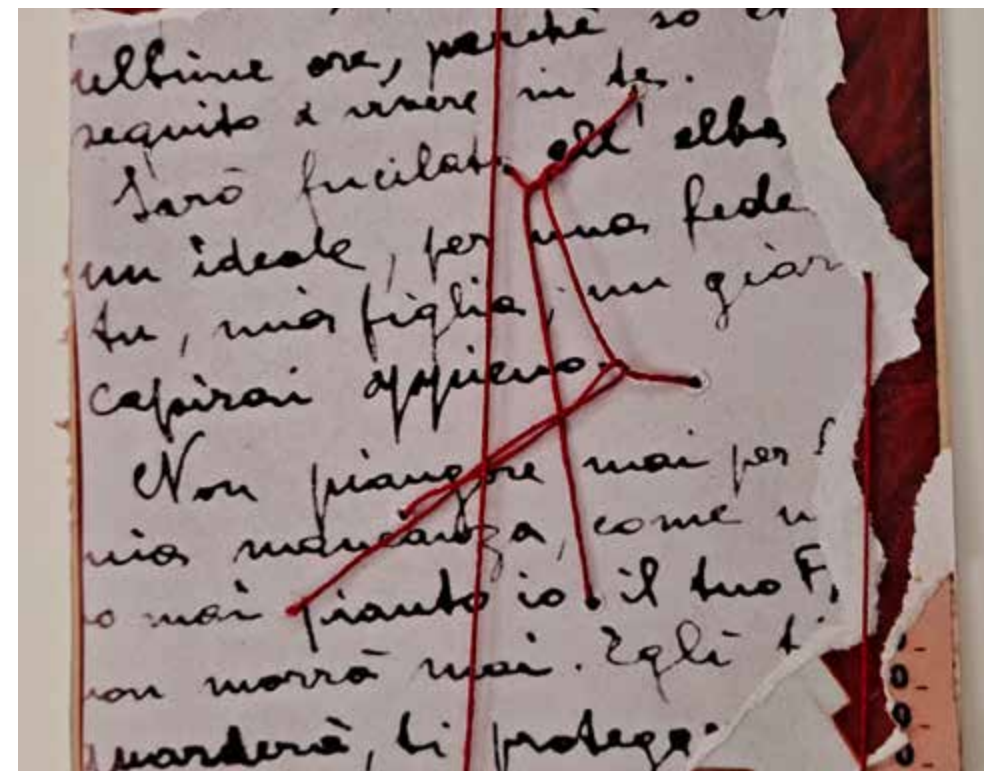 ultime ore, perchè so
seguito a vivere in te.
Sarò fucilato all'alba
un ideale, per una fede
tu, mia figlia, un gior
capirai appieno.
Non piangere mai per
mia mancanza, come n
o mai pianto io il tuo
on morrà mai. Egli ti
guarderà, ti protegge